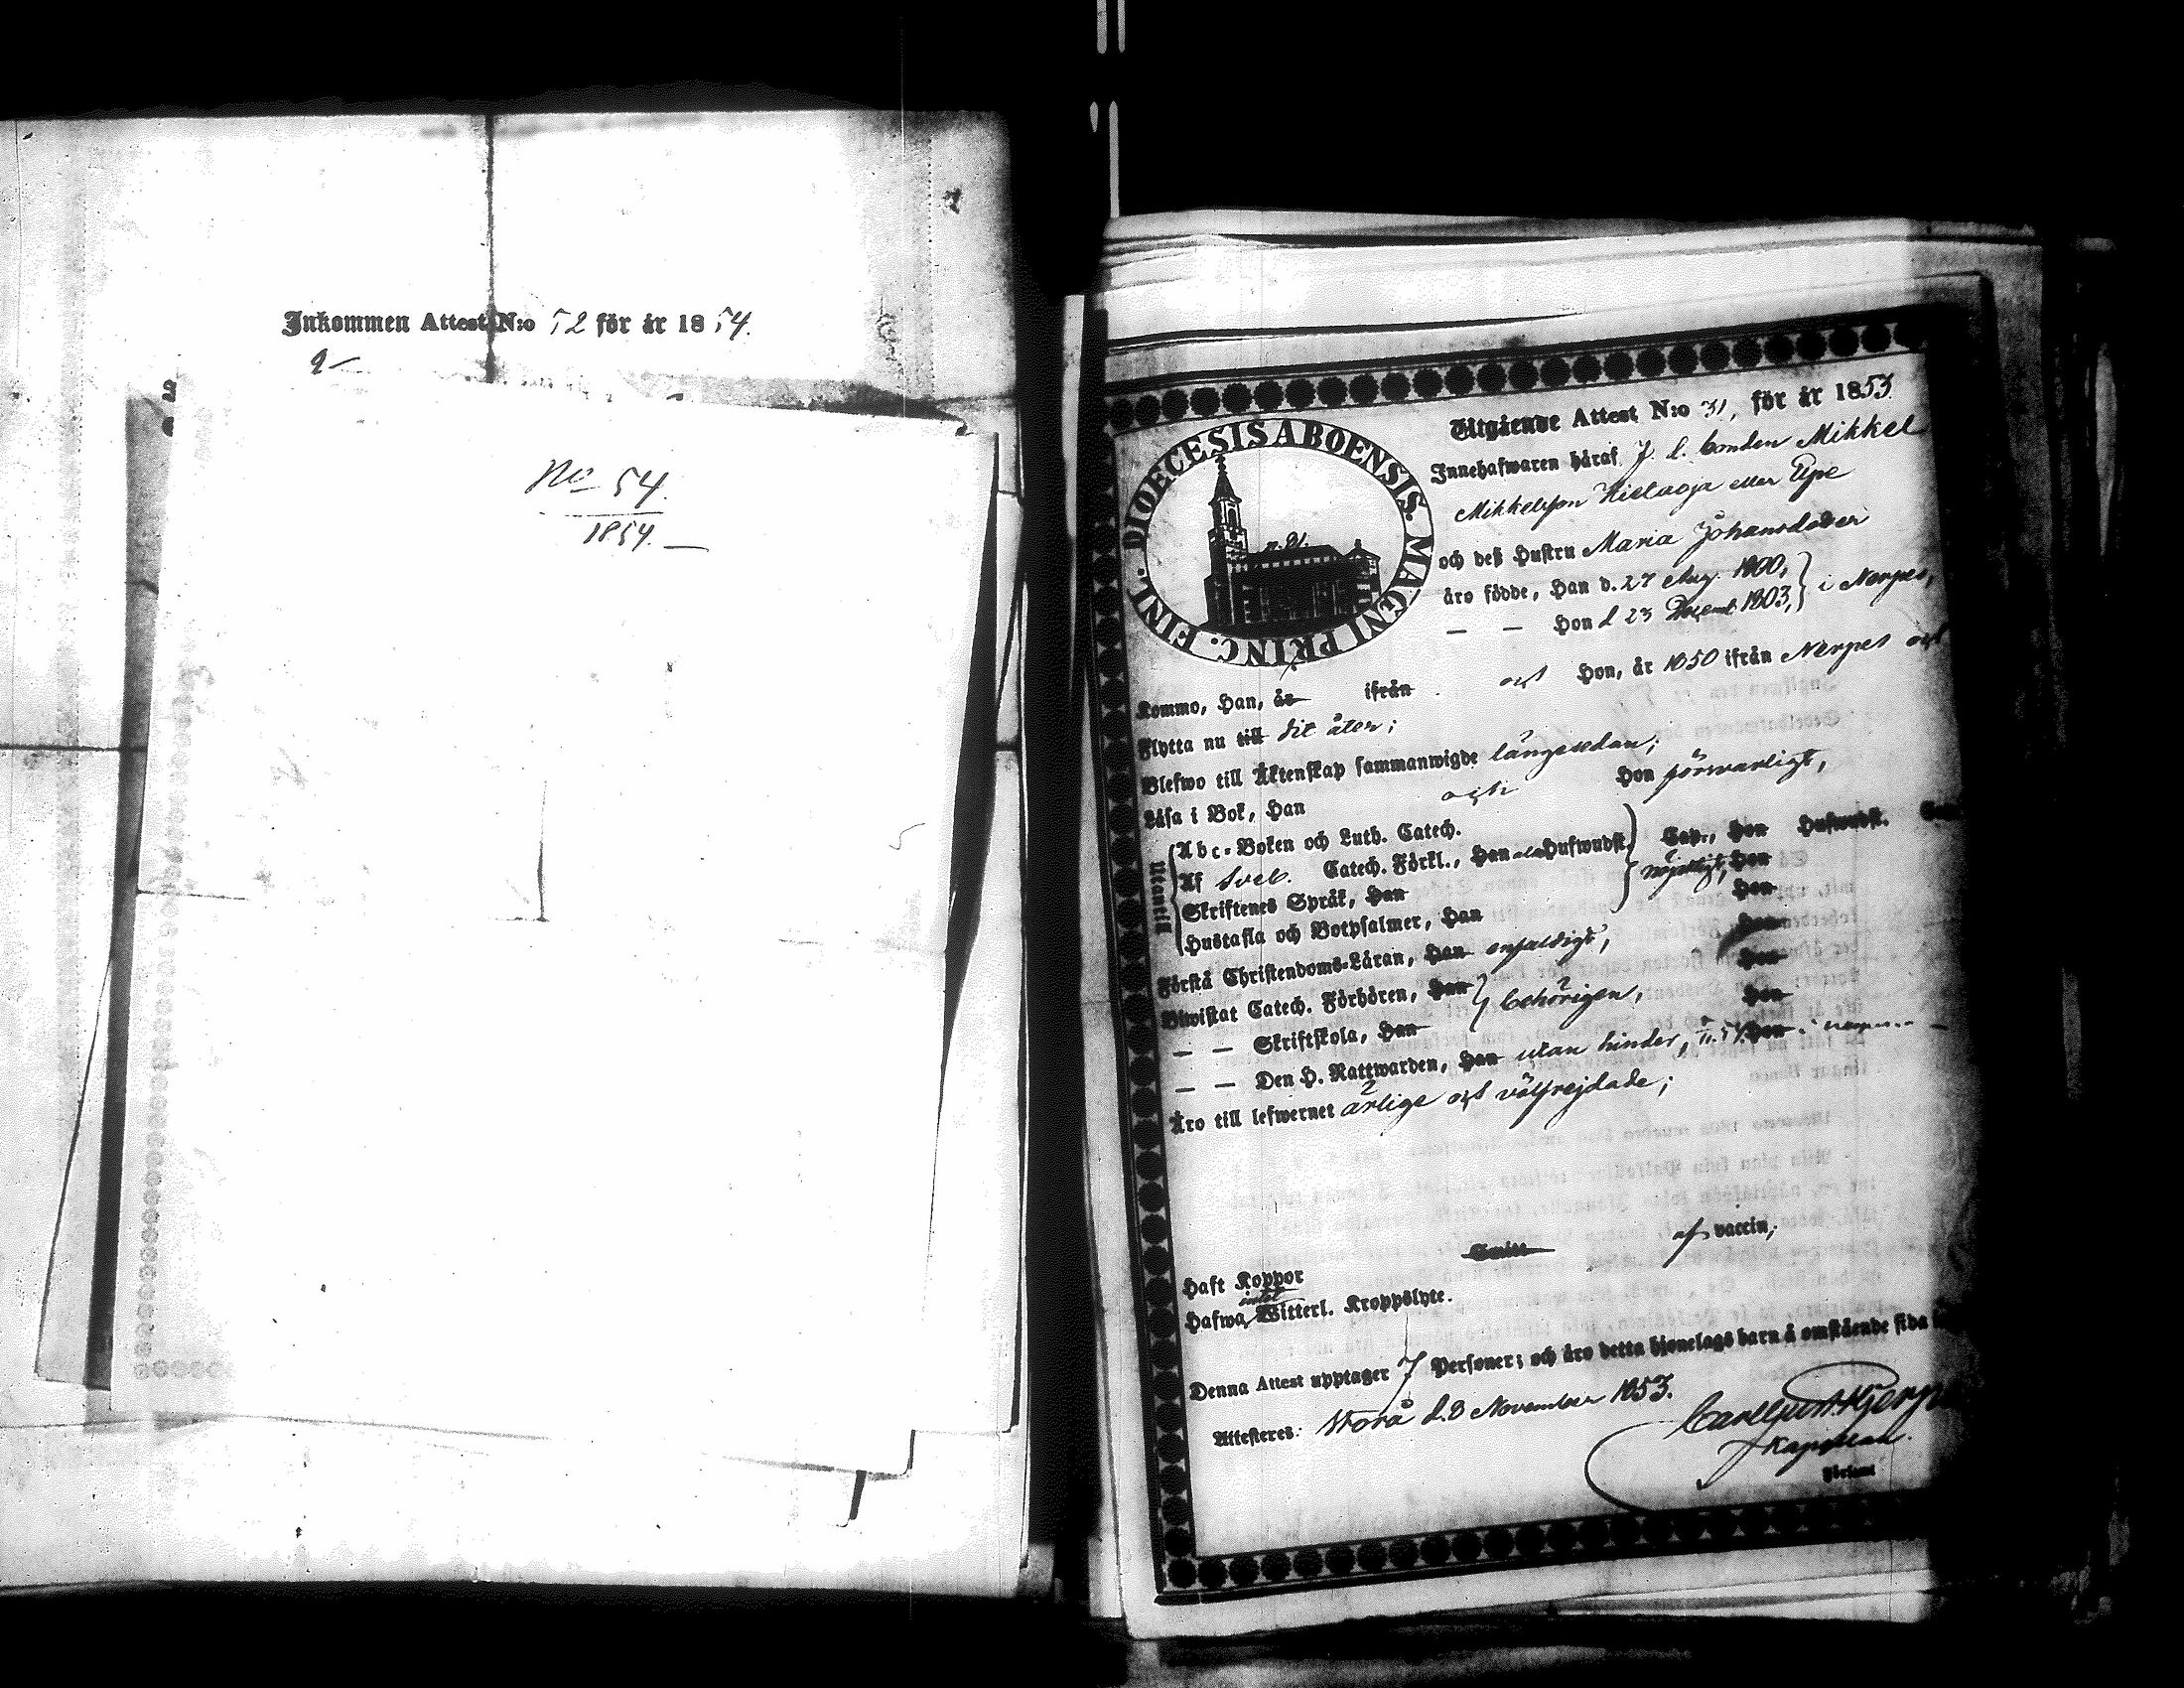 Inkommen Attest N:o 52 för år 1854.
No 54.
1854.
DIOECESIS ABOENSIS. MAGNI PRINC. FINL.
Utgående Attest N:o 31, för år 1853.
Innehafwaren häraf, f. d. bonden Mikkel
Mikkelsson eller
och deß Hustru Maria Johansdotter
äro födde, Han d. 27 Aug. 1800,
— — Hon d 23 Decemb. 1803, } i Nerpes,
Kommo, Han, år ifrån och Hon, år 1850 ifrån Nerpes och
Flytta nu till dit åter;
Blefwo till Äktenskap sammanwigde längesedan;
Läsa i Bok, Han och Hon försvarligt,
Utantill
Abc-Boken och Luth. Catech.
Af Sveb. Catech. Förkl., Han Hufwudst. Cap., Hon Hufwudst.
Skriftenes Språk, Han nöjaktigt, Hon
Hustafla och Botpsalmer, Han Hon
Förstå Christendoms-Läran, Han enfaldigt, Hon
Biwistat Catech. Förhören, Han } behörigen, Hon
— — Skriftskola, Han Hon
— — Den H. Nattwarden, Han utan hinder, Hon
Äro till lefwernet ärlige och välfrejdade;
Haft Koppor Smitt af vaccin;
Hafwa intet Witterl. Kroppslyte.
Denna Attest upptager 7 Personer; och äro detta hjonelags barn å omstående sida
Attesteras: Storå d. 8 November 1853.
Kapellan.